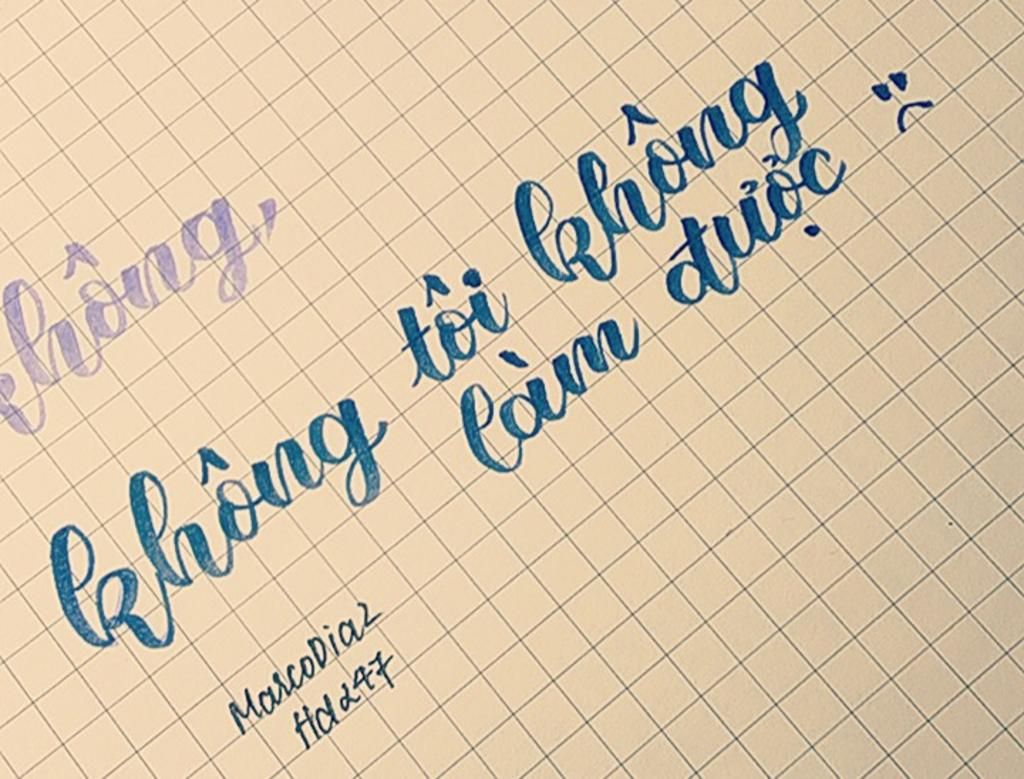 không,
không tôi không
làm được
MarcoDiaz
Hd247